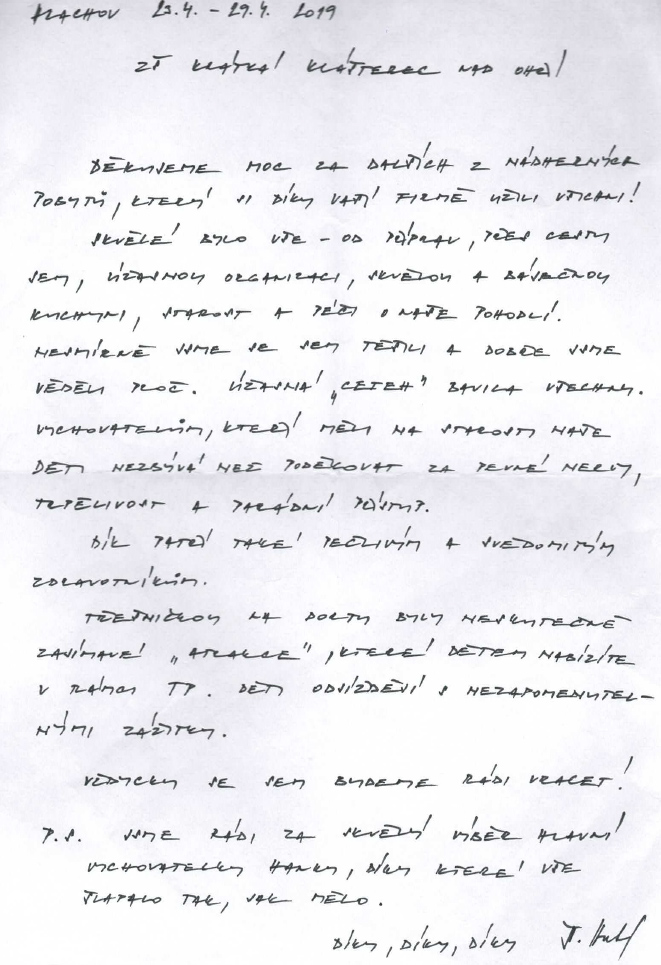 MACHOV 25.4. - 29.4. 2019
ZŠ KRÁTKÁ KLÁŠTEREC NAD OHŘÍ
DĚKUJEME MOC ZA DALŠÍCH Z NÁDHERNÝCH
POBYTŮ, KTERÝ SI DÍKY VAŠÍ FIRMĚ UŽILI VŠICHNI!
SKVĚLÉ BYLO VŠE - OD PŘÍPRAV, PŘES CESTU
SEM, ÚŽASNOU ORGANIZACI, SKVĚLOU A BÁJEČNOU
KUCHYNI, STAROST A PÉČI O NAŠE POHODLÍ.
NESMÍRNĚ JSME SE SEM TĚŠILI A DOBŘE JSME
VĚDĚLI PROČ. ÚŽASNÁ „CETEH" BAVILA VŠECHNY.
VYCHOVATELŮM, KTEŘÍ MĚLI NA STAROSTI NAŠE
DĚTI NEZBÝVÁ NEŽ PODĚKOVAT ZA PEVNÉ NERVY,
TRPĚLIVOST A PARÁDNÍ PŘÍSTUP.
DÍK PATŘÍ TAKÉ PEČLIVÝM A SVĚDOMITÝM
ZDRAVOTNÍKŮM.
TŘEŠNIČKOU NA DORTU BYLY NESKUTEČNĚ
ZAJÍMAVÉ „ATRAKCE", KTERÉ DĚTEM NABÍZÍTE
V RÁMCI TP. DĚTI ODJÍŽDĚJÍ S NEZAPOMENUTEL-
NÝMI ZÁŽITKY.
VŽDYCKY SE SEM BUDEME RÁDI VRACET!
P.S. JSME RÁDI ZA SKVĚLÝ VÝBĚR HLAVNÍ
VYCHOVATELKY HANKY, DÍKY KTERÉ VŠE
ŠLAPALO TAK, JAK MĚLO.
DÍKY, DÍKY, DÍKY